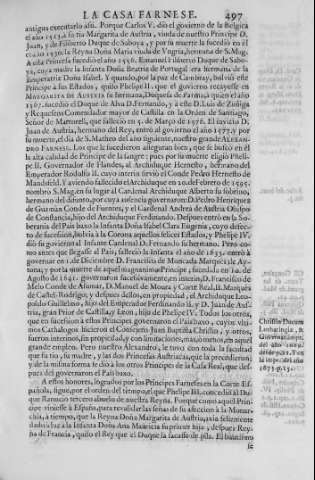 LA CASA FARNESE. 497
antiguos exercitarlo assi. Porque Carlos V. diò el govierno de la Belgica
el año 1523. à su tia Margarita de Austria, viuda de nuestro Principe D.
Juan, y de Filiberto Duque de Saboya, y por su muerte la sucediò en el
de 1530. la Reyna Doña Maria viuda de Vngria, hermana de S. Mag.
A esta Princesa sucediò el año 1556. Emanuel Filiberto Duque de Sabo-
ya, cuya madre la Infanta Doña Beatriz de Portugal era hermana de la
Emperatriz Doña Isabel. Y quando, por la paz de Cambray, bolviò este
Principe à sus Estados, quiso Phelipe II. que el govierno recayesse en
MARGARITA DE AUSTRIA su hermana, Duquesa de Parma, à quien el año
1567. sucediò el Duque de Alva D. Fernando, y à este D. Luis de Zuñiga
y Requesens Comendador mayor de Castilla en la Orden de Santiago,
Señor de Martorell, que falleciò en 5. de Março de 1576. El invicto D.
Juan de Austria, hermano del Rey, entrò al govierno el año 1577. y por
su muerte, el dia S. Matheo del año siguiente, nuestro grande ALEXAN-
DRO FARNESE. Los que le sucedieron asseguran bien, que se buscò en èl
la alta calidad de Principe de la sangre: pues por su muerte eligiò Pheli-
pe II. Governador de Flandes, al Archiduque Hernesto, hermano del
Emperador Rodulfo II. cuyo interin sirviò el Conde Pedro Hernesto de
Mandsfeld. Y aviendo fallecido el Archiduque en 20. de Febrero de 1595.
nombrò S. Mag. en su lugar al Cardenal Archiduque Alberto su sobrino,
hermano del difunto, por cuya ausencia governaron: D. Pedro Henriquez
de Guzmàn Conde de Fuentes, y el Cardenal Andrea de Austria Obispo
de Constancia, hijo del Archiduque Ferdinando. Despues entrò en la So-
berania del Pais baxo la Infanta Doña Clara Eugenia, cuyo defec-
to de sucession, bolviò à la Corona aquellos felices Estados, y Phelipe IV.
diò su govierno al Infante Cardenal D. Fernando su hermano. Pero co-
mo antes que llegasse al Pais, falleciò la Infante el año de 1633. entrò à
governar en 1. de Diciembre D. Francisco de Moncada Marquès de Ay-
tona; y por la muerte de aquel magnanimo Principe, sucedida en 10. de
Agosto de 1641. governaron successivamente, en interin, D. Francisco de
Melo Conde de Assumar, D. Manuel de Moura y Corte Real, II. Marquès
de Castel-Rodrigo; y despues dellos, en propiedad, el Archiduque Leo-
poldo Guillelmo, hijo del Emperador Ferdinando II. y D. Juan de Aus-
tria, gran Prior de Castilla, y Leon, hijo de Phelipe IV. Todos los otros,
que en sucession à estos Principes governaron el Pais baxo, cuyos vlti-
mos Cathalogos hizieron el Cotiseris Juan Baptista Christin, y otros,
fueron interinos, sin propiedad, y con limitaciones, mayores, ò menores, en aquel
grande empleo. Pero nuestro Alexandro, le tuvo con toda la facultad
que su tia, su madre, y las dos Princesas Austriacas, que la precedieron;
y de la misma forma le diò à los otros Principes de la Casa Real, que des-
pues governaron el Pais baxo.
A estos honores, logrados por los Principes Farneses en la Corte Es-
pañola, sigue, por el orden del tiempo, el que Phelipe III. concediò al Du-
que Ranucio tercero abuelo de nuestra Reyna. Porque como aquel Prin-
cipe viniesse à España, para revalidar las señas de su afeccion à la Monar-
chia, à tiempo, que la Reyna Doña Margarita de Austria, avia felizmente
dado à luz à la Infanta Doña Ana Mauricia su primer hija, despues Rey-
na de Francia, quiso el Rey que el Duque la sacasse de pila. El bautismo
se